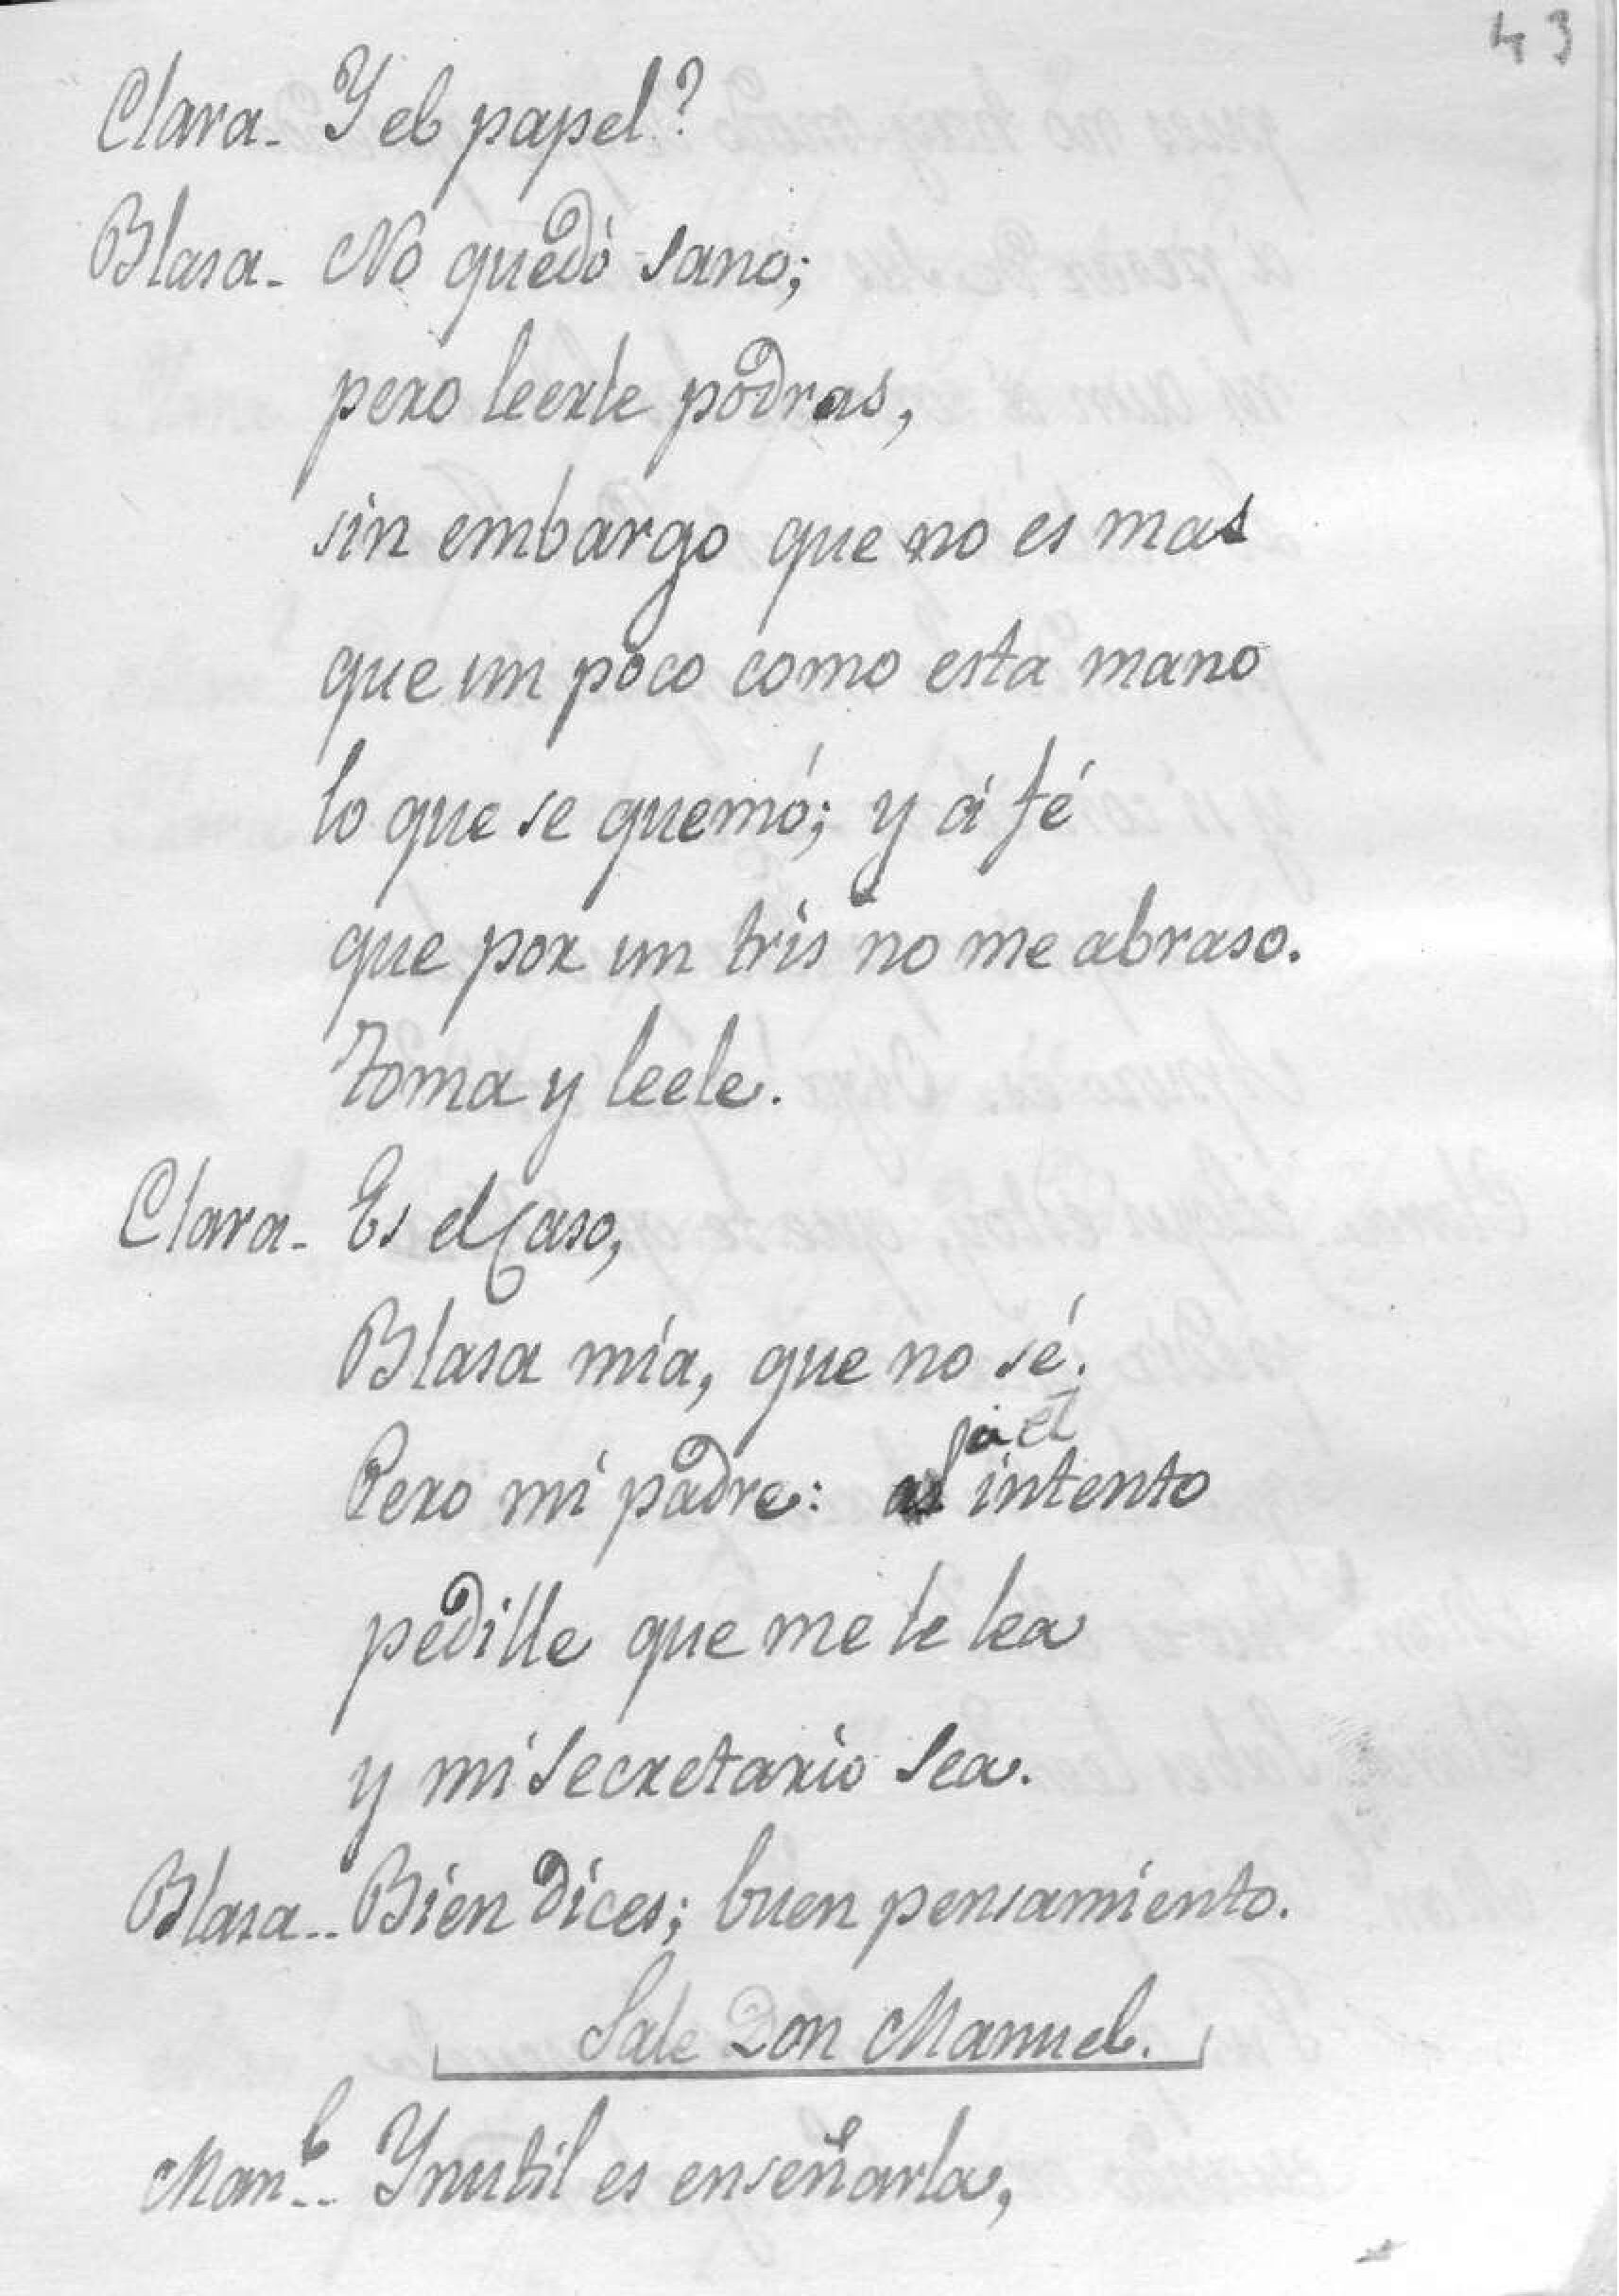 43
Clara. Y el papel?
Blasa. No quedó sano;
pero leerle podras,
sin embargo que no es mas
que un poco como esta mano
lo que se quemó; y á fé
que por un tris no me abraso.
Toma y leele.
Clara. Es el Caso,
Blasa mía, que no sé.
Pero mi padre: al intento
pedille que me le lea
y mi secretario sea.
Blasa.. Bien dices; buen pensamiento.
Sale Don Manuel.
Man.l.. Ynutil es enseñarla,